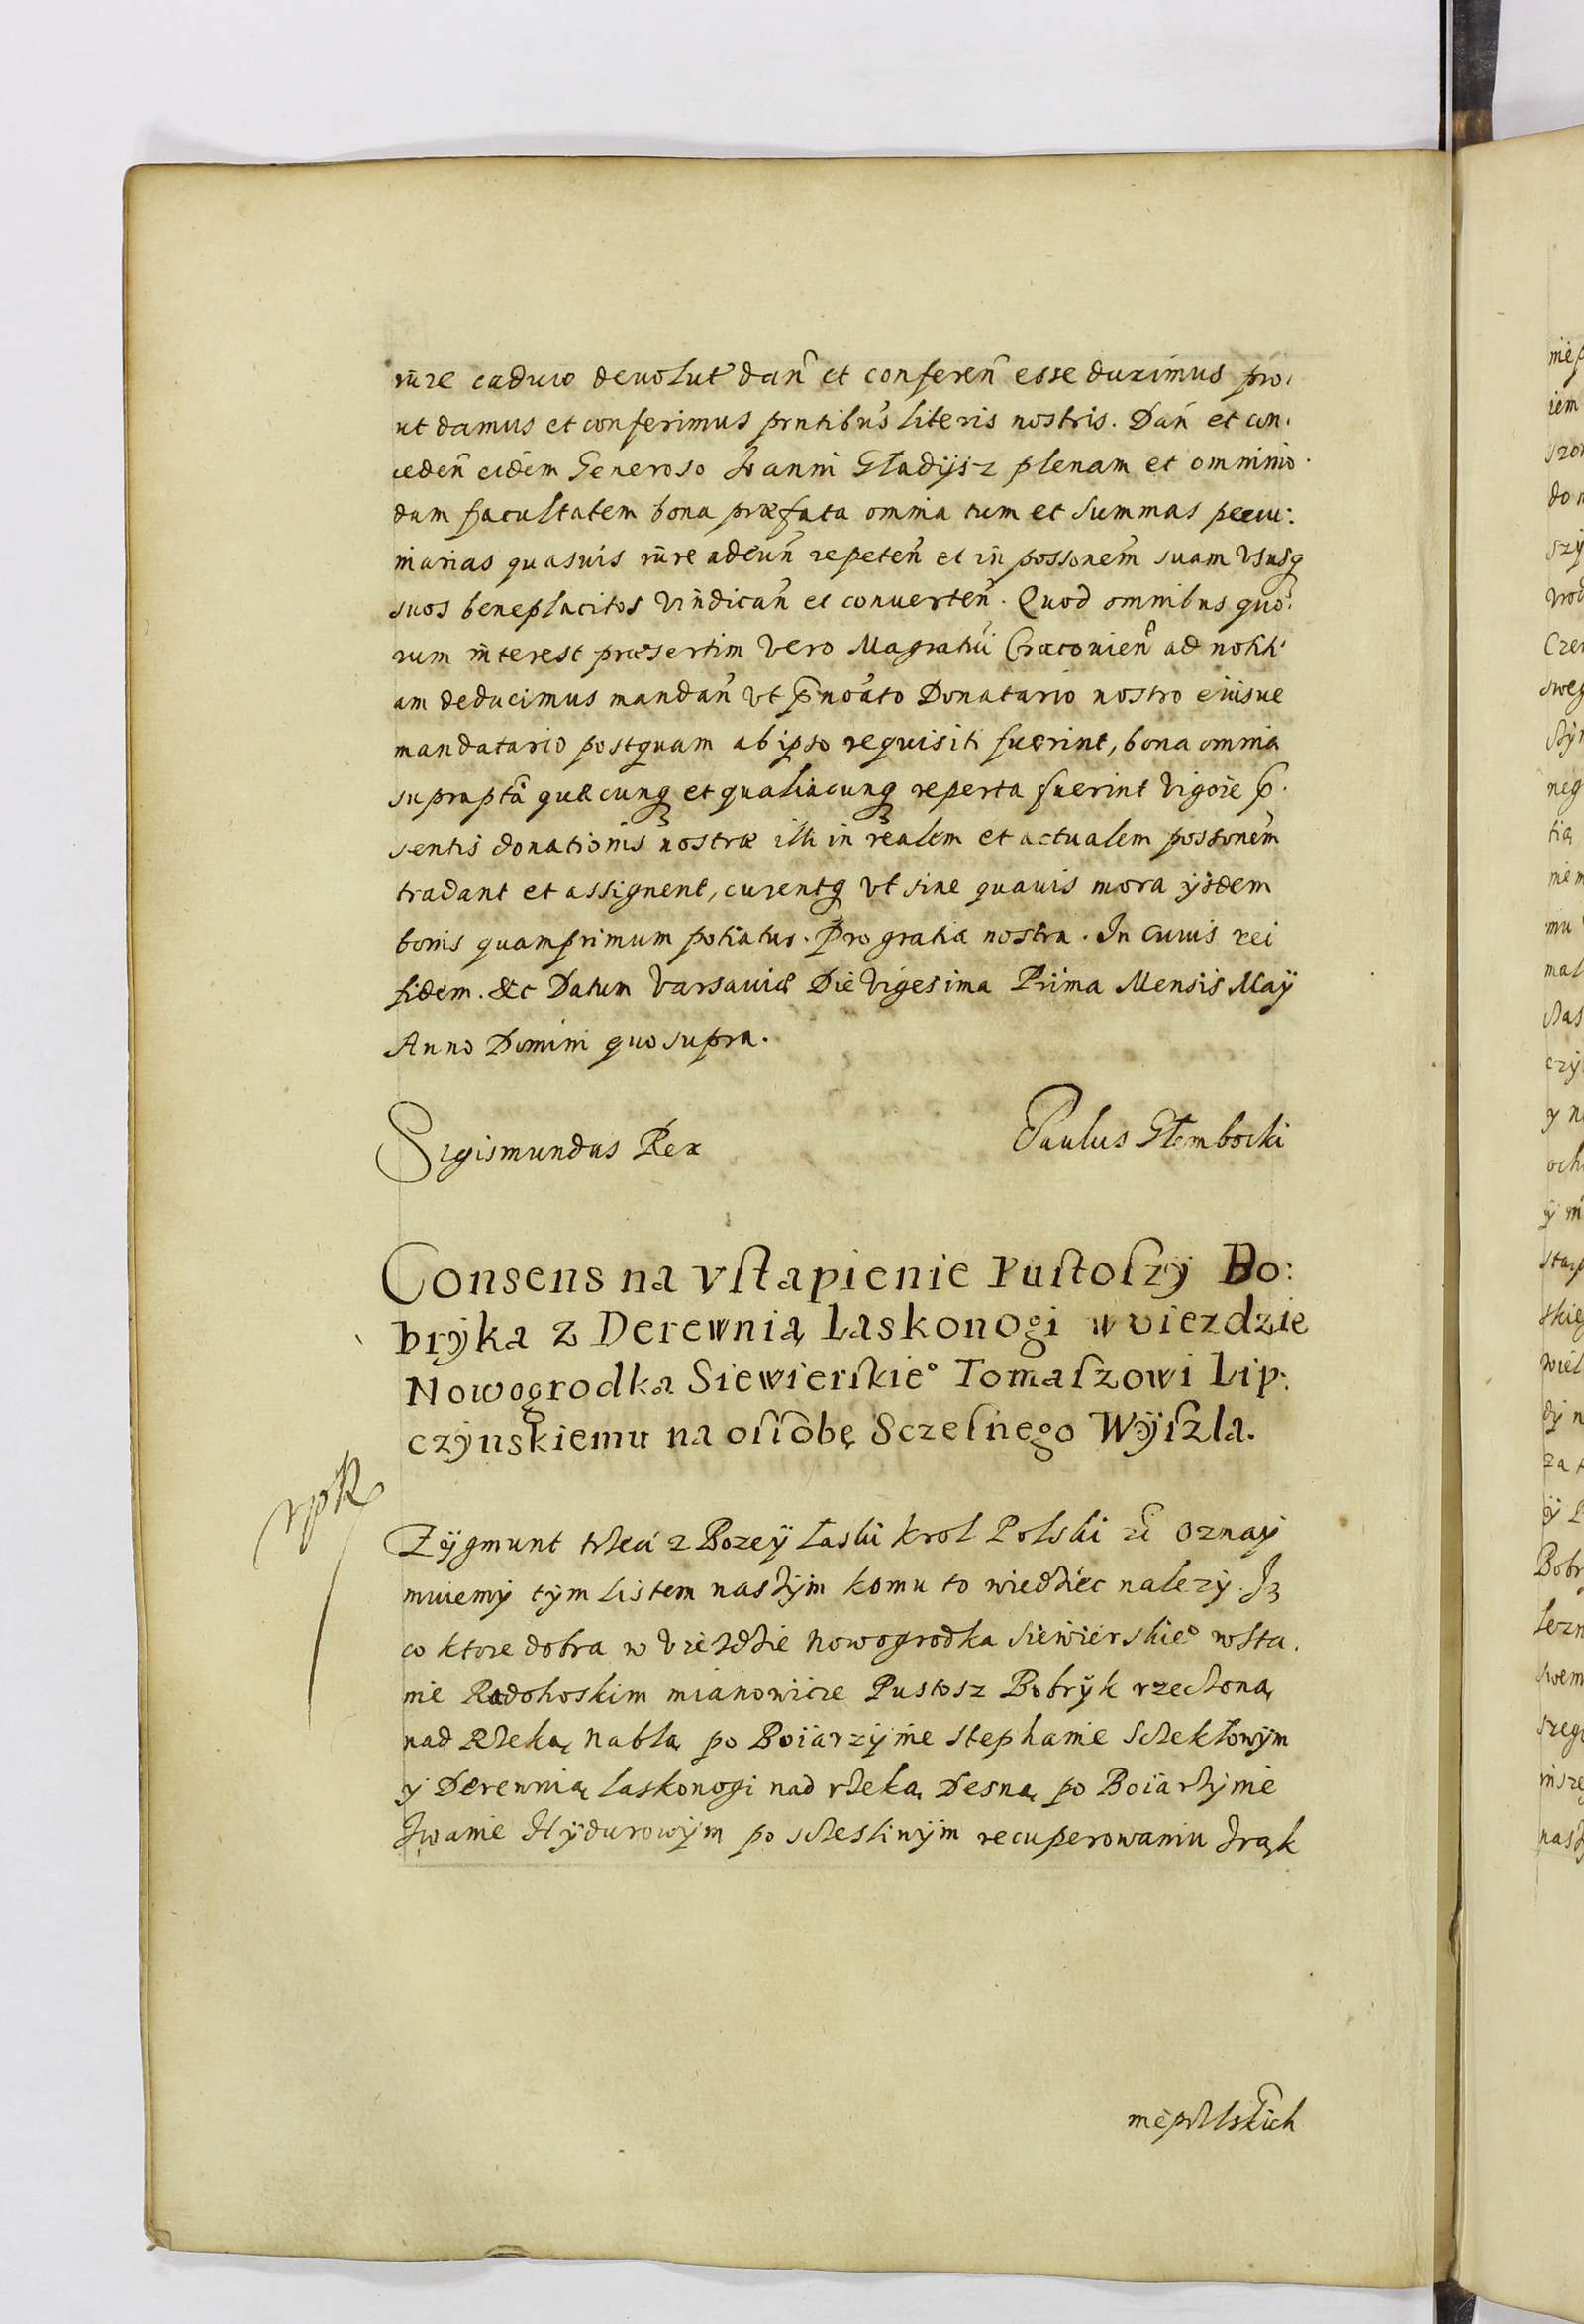 iure caduco devolut dan et conferen esse duximus pro:
ut damus et conferimus prntibus literis nostris. Dan et con:
ceden eidem Generoso Joanni Gładijsz plenam et omnimo:
dam facultatem bona præfata omnia tum et summas pecu:
niarias quasuis iure adeun repeten et in possonem suam Vsusq
suos beneplacitos Vindican et conuerten. Quod omnibus quo:
rum interest præsertim Vero Magratui Cracouien ad notiti
am deducimus mandan Vt pnoato Donatario nostro eiusue
mandatario postquam ab ipso requisiti fuerint, bona omnia
suprapta quæcunq et qualiacunq reperta fuerint Vigore p.
sentis donationis nostræ illi in realem et actualem possonem
tradant et assignent, curentq Vt sine quauis mora ijsdem
bonis quamprimum potiatur. Pro gratia nostra. In cuius rei
fidem. &c Datum Varsaviæ Die Vigesima Prima Mensis Maÿ
Anno Domini quo supra.
Sigismundus Rex Paulus Głembocki
Consens na vstapienie Pustoszÿ Bo:
brÿka z Derewnią Laskonogi w viezdzie
Nowogrodka Siewierskie° Tomaszowi Lip:
czÿnskiemu na osiobę Sczesnego Wÿszla.
Zÿgmunt trzeci z Bozeÿ łaski krol Polski &c Oznaÿ
muiemÿ tÿm listem naszÿm komu to wiedziec nalezÿ. Iz
co ktore dobra w Vieździe Nowogrodka Siewierskie° w sta.
nie Radohoskim mianowicie Pustosz Bobrÿk rzeczoną
nad Rzeką Nabłą po Boiarzÿnie Stephanie Szekłowÿm
ÿ Derewnią laskonogi nad rzeką Desną po Boiarzÿnie
Iwanie Hÿdurowÿm po szczesliwÿm recuperowaniu Zrąk